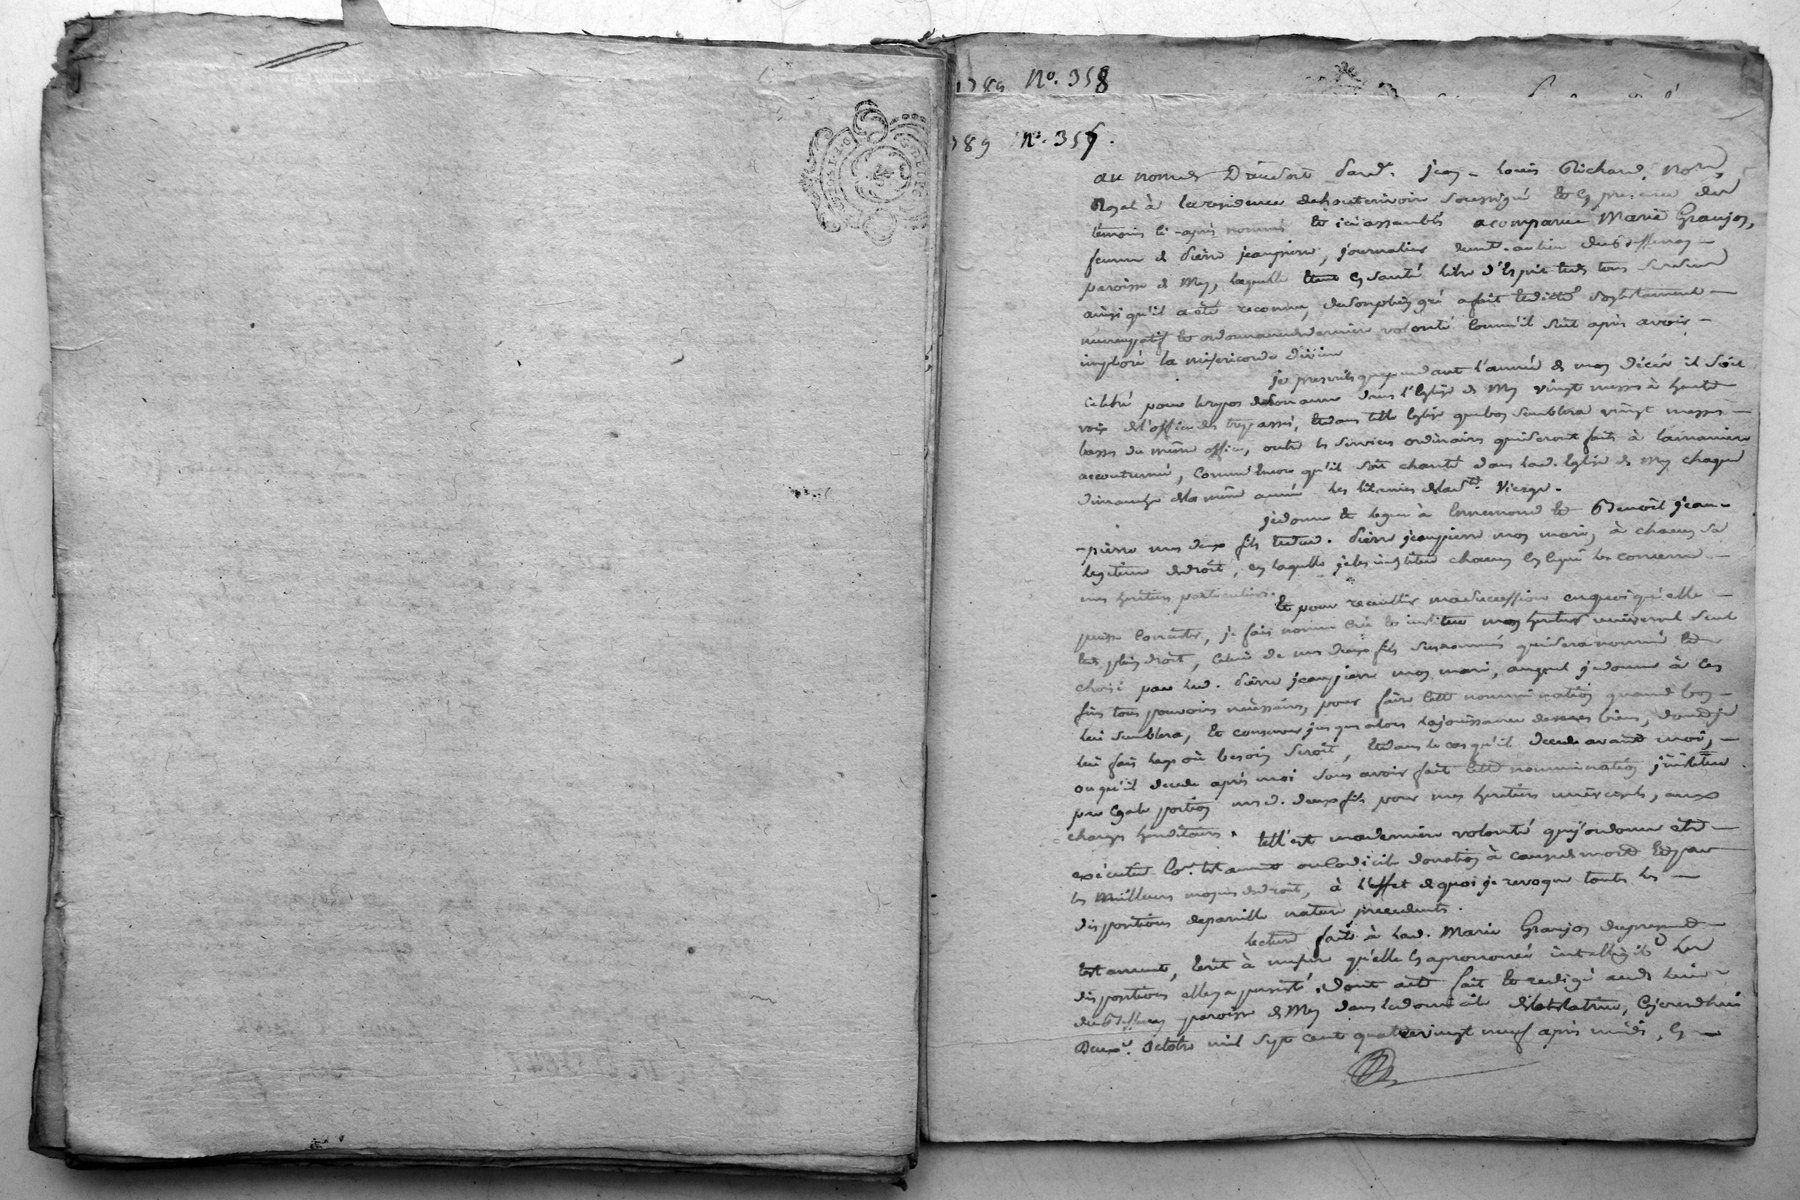 1789 No. 358
1789 No. 357.
au nom de Dieu soit Sand. jean-Louis Richard, Not.
Royal à la residence de hauterivoir soussigné et En presence des
temoins ci-après nommés et ici assemblés a comparu Marie Granjon,
femme de Pierre jeanpierre, journalier demt. au lieu du
paroisse de Mey, laquelle etant En santé libre d'Esprit Et de tous ses sens
ainsi qu'il a été reconnu, de son plein gré a fait Et dicté son testament
nuncupatif Et ordonnance de derniere volonté Comm'il suit après avoir
imploré la misericorde divine
je prescris que pendant l'année de mon décès il soit
Celebré pour le repos de mon ame dans l'Eglise de Mey vingt messes à haute
voix de l'office des trepassés, Et dans telle Eglise que bon semblera vingt messes
basses du même office, outre les services ordinaires qui seront faits à la maniere
accoutumée, Comm' Encore qu'il soit chanté dans lad. Eglise de Mey chaque
dimanche de la même année les litanies de la ste. Vierge.
je donne Et legue à Ennemond Et Benoît jean-
-pierre mes deux fils Et dud. Pierre jeanpierre mon mari, à chacun sa
legitime de droit, En laquelle je les institue chacun En ce qui les concerne
mes heritiers particuliers.
Et pour recueillir ma succession En quoi qu'elle
puisse Consister, je fais nomme Crée Et institue mon heritier universel seul
Et de plein droit, Celui de mes deux fils susnommés qui sera nommé Et
choisi par led. Pierre jeanpierre mon mari, auquel je donne à ces
fins tous pouvoirs necessaires, pour faire cette nommination quand bon
lui semblera, Et conserver jusques alors la jouissance de mes biens, dont je
lui fais legs où besoin seroit, Et dans le cas qu'il decede avant moi,
ou qu'il decede après moi sans avoir fait cette nommination j'institue
par Egale portion mesd. deux fils pour mes heritiers universels, aux
charges hereditaires. tell'est ma derniere volonté que j'ordonne être
exécutée Co.e testament ou Codicile donation à cause de mort Et par
les meilleurs moyens de droit, à l'Effet de quoi je revoque toutes les
dispositions de pareille nature precedentes.
lecture faite à lad. Marie Granjon du present
testament, Ecrit à mesure qu'elle En a prononcé intelligible les
dispositions elle y a persisté. dont acte fait Et redigé aud. lieu
du paroisse de Mey dans le domicile de la testatrice, Cejourd'hui
Deux.e octobre mil sept cent quatrevingt neuf après midi, En